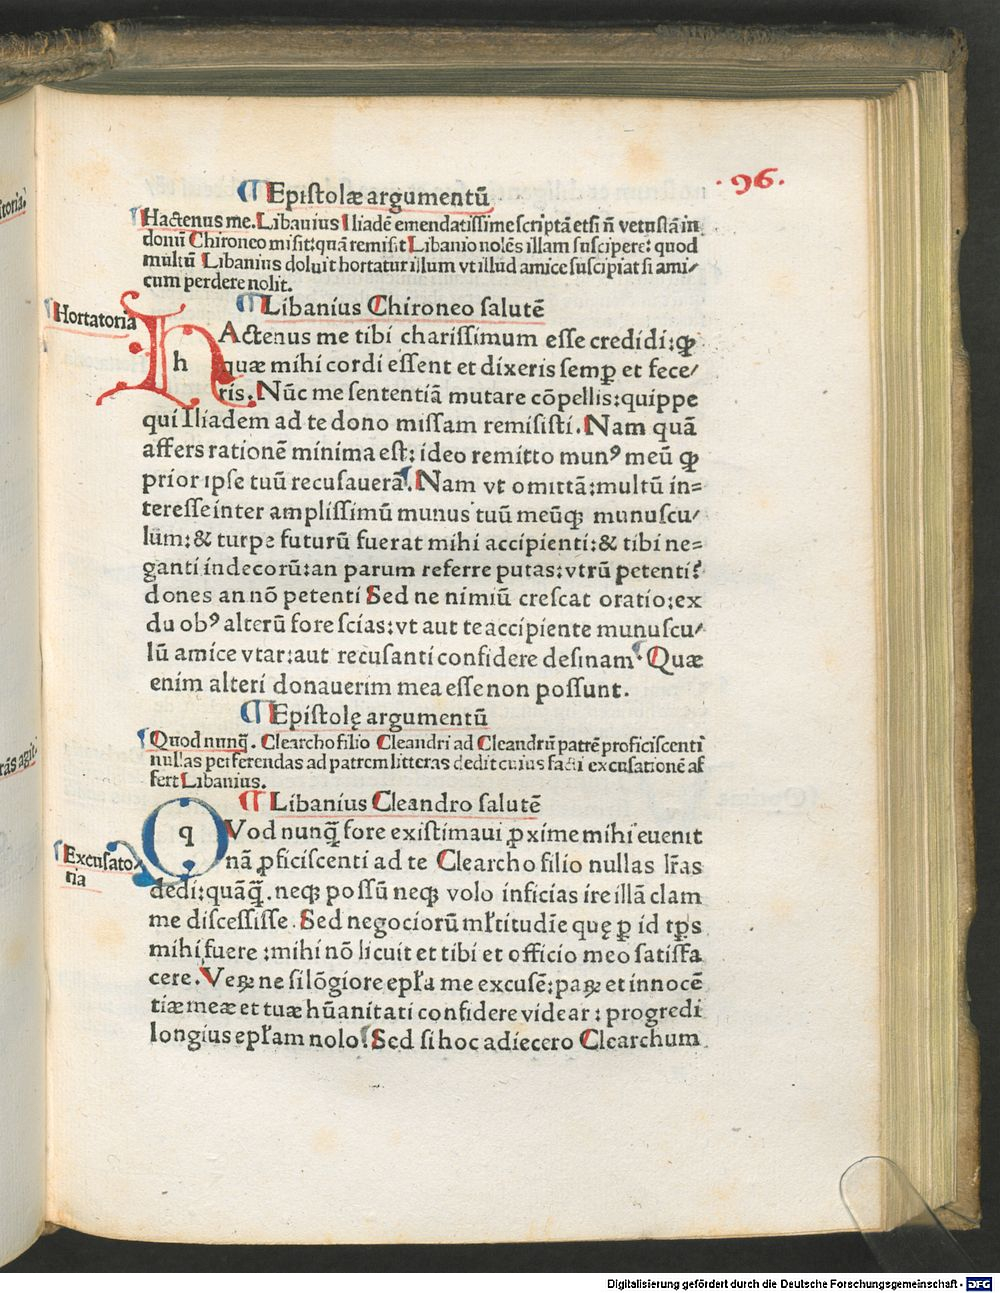 .96.
¶Epistolæ argumentū
Hactenus me. Libanius Iliadē emendatissime scriptā etsi ñ vetustā in
donū Chironeo misit: quā remisit Libanio nolēs illam suscipere: quod
multū Libanius doluit hortatur illum vt illud amice suscipiat si ami/
cum perdere nolit.
¶Libanius Chironeo salutē
Hortatoria
hActenus me tibi charissimum esse credidi: ꝙ
quæ mihi cordi essent et dixeris semꝑ et fece/
ris. Nūc me sententiā mutare cōpellis: quippe
qui Iliadem ad te dono missam remisisti. Nam quā
affers rationē minima est: ideo remitto munꝰ meū ꝙ
prior ipse tuū recusauerā. Nam vt omittā: multū in=
teresse inter amplissimū munus tuū meūqꝫ munuscu/
lūm: & turpe futurū fuerat mihi accipienti: & tibi ne=
ganti indecorū: an parum referre putas: vtrū petenti?
dones an nō petenti Sed ne nimiū crescat oratio: ex
du obꝰ alterū fore scias: vt aut te accipiente munuscu/
lū amice vtar: aut recusanti confidere desinam. Quæ
enim alteri donauerim mea esse non possunt.
¶Epistolę argumentū
Quod nunq̄. Clearcho filio Cleandri ad Cleandrū patrē proficiscenti
nullas perferendas ad patrem litteras dedit cuius facti excusationē af
fert Libanius.
¶Libanius Cleandro salutē
Excusato
ria
qVod nunq̄ fore existimaui ꝓxime mihi euenit
nā ꝓficiscenti ad te Clearcho filio nullas lr̄as
dedi: quāq̄. neqꝫ possū neqꝫ volo inficias ire illā clam
me discessisse. Sed negociorū mĺtitudīe quę ꝑ id tꝑs
mihi fuere: mihi nō licuit et tibi et officio meo satisfa
cere. Veꝝ ne si lōgiore epĺa me excusē: paꝝ et innocē
tiæ meæ et tuæ hūanitati confidere videar: progredi
longius epĺam nolo. Sed si hoc adiecero Clearchum
storia.
rās agit.
Digitalisierung gefördert durch die Deutsche Forschungsgemeinschaft - DFG